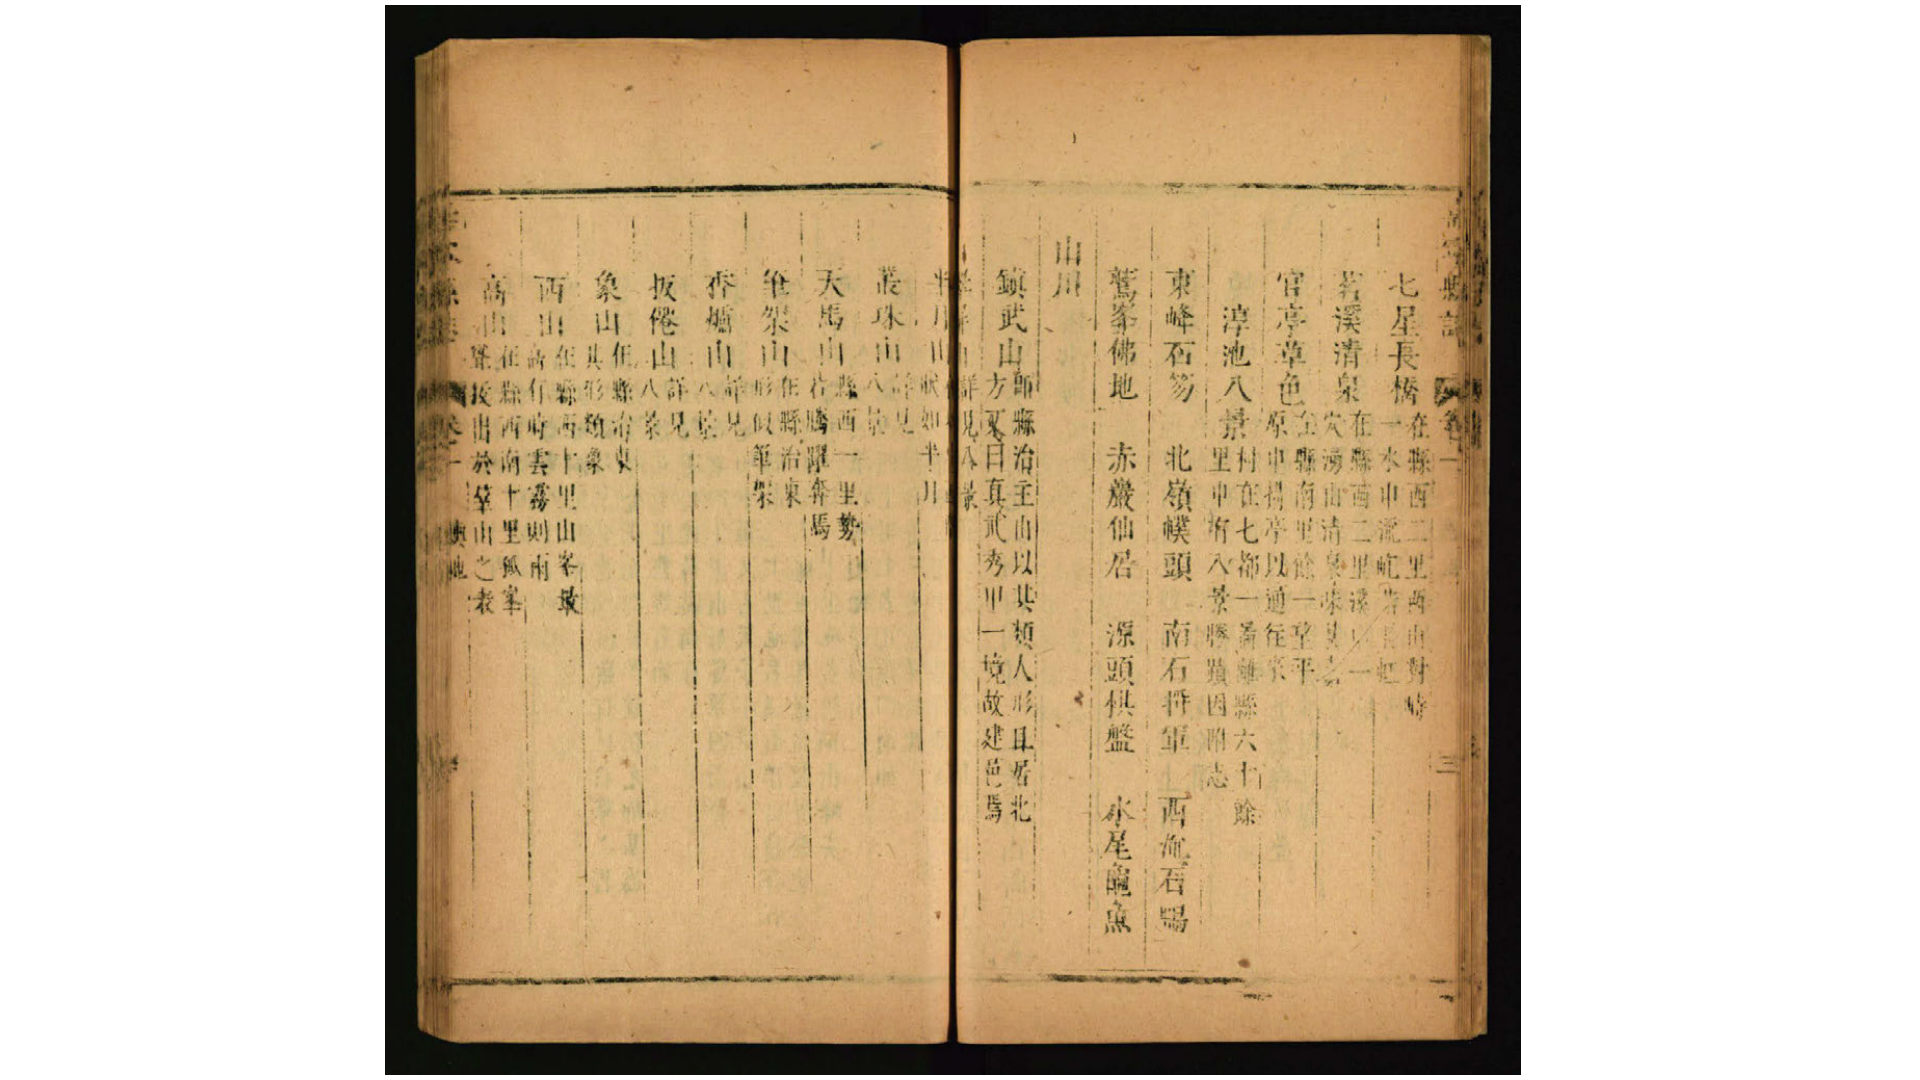 七星長橋 在縣西二里西山對峙
一水中流屹
茗溪清泉 在縣西二里溪一
穴湧出清泉味甘
官亭草色 至縣南里餘一望平
原中搆亭以通往來
淳池八景 村在七都一啚離縣六十餘
里中有八景勝蹟因附志
東峰石笏 北嶺幞頭 南石将軍 西石
鷲峯佛地 赤巖仙居 源頭棋盤 水尾龜魚
山川
鎮武山 即縣治主山以其類人形且居北
方又曰真武秀甲一境故建邑焉
半月山 詳見八景
狀如半月
叢珠山 詳見
八景
天馬山 縣西一里勢
若騰躍奔馬
筆架山 在縣治東
形似筆架
香爐山 詳見
八景
扳倦山 詳見
八景
象山 在縣治東
其形類象
西山 在縣西十里山峯最
高有時雲霧則雨
高山 在縣西南十里孤峯
聳拔出於羣山之表
卷一
三